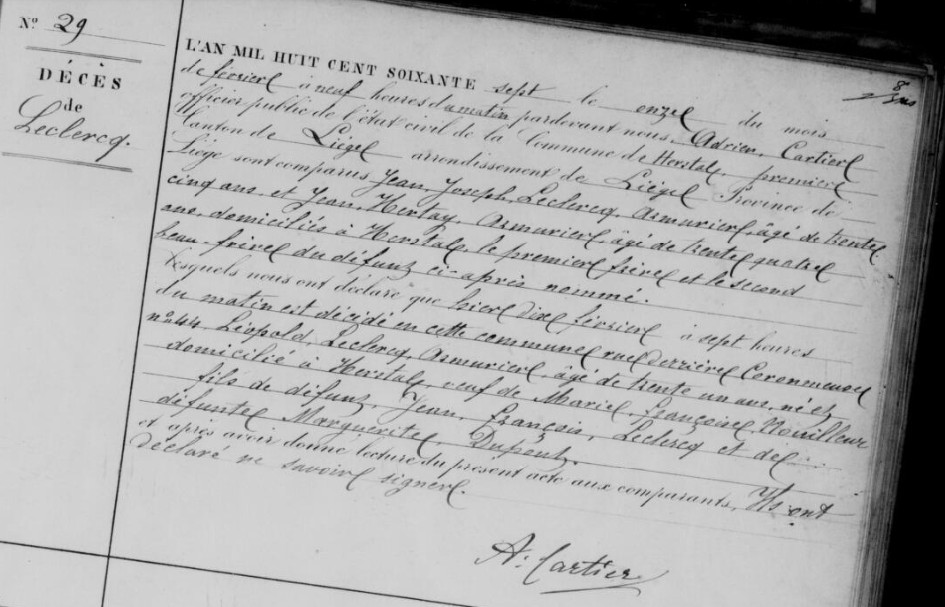 N° 29
DÉCÈS
de
Leclercq.
L'AN MIL HUIT CENT SOIXANTE sept le onze du mois
de février à neuf heures du matin pardevant nous, Adrien, Cartier
officier public de l'état civil de la Commune de Herstal, premier
Canton de Liège arrondissement de Liège Province de
Liège sont comparus Jean, Joseph, Leclercq, armurier, âgé de trente
cinq ans et Jean, Hertay, armurier, âgé de trente quatre
ans, domiciliés à Herstal, le premier frère et le second
beau-frère du défunt ci-après nommé.
Lesquels nous ont déclaré que hier dix février à sept heures
du matin est décédé en cette commune rue derrière Coronmeuse
n° 44, Léopold, Leclercq, armurier, âgé de trente un ans, né et
domicilié à Herstal, veuf de Marie, Françoise,
fils de défunt, Jean, François, Leclercq et de
défunte Marguerite, Dupont.
et après avoir donné lecture du présent acte aux comparants, Ils ont
déclaré ne savoir signer.
A. Cartier